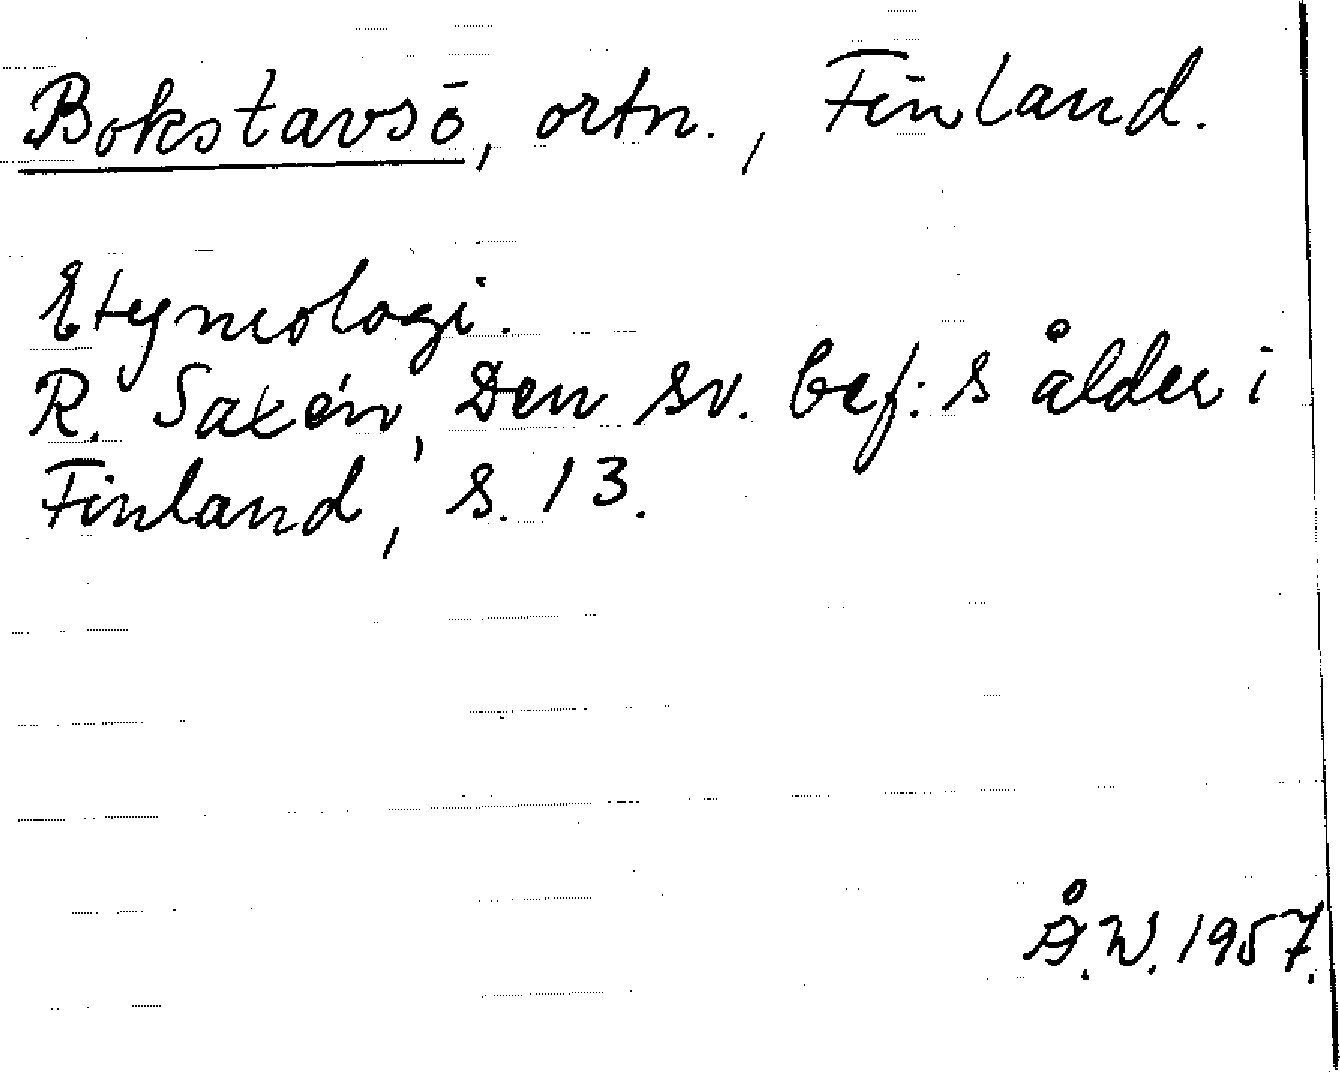 Bokstavsö, ortn., Finland.
Etymologi.
R. Saxén, Den sv. bef:s ålder i
Finland, s. 13.
Å.W. 1957.